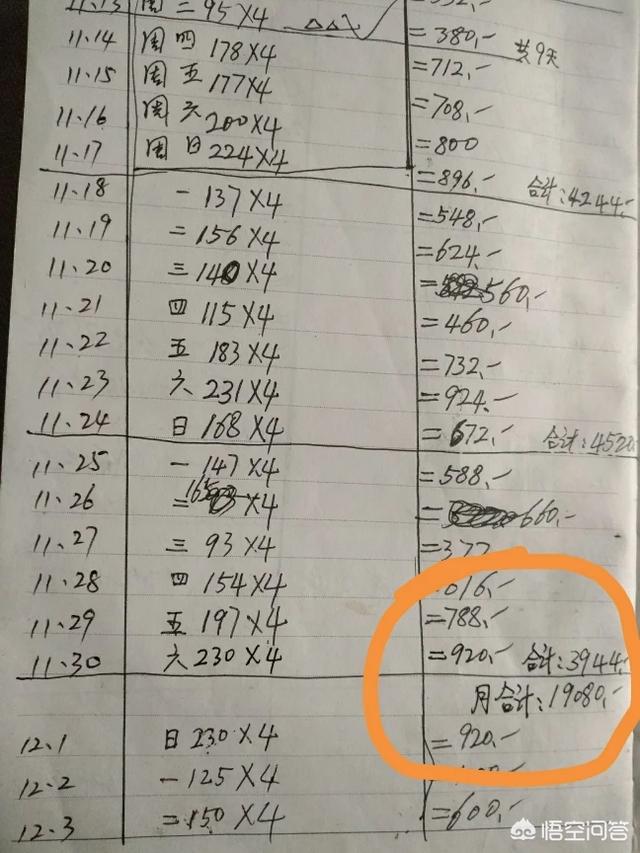 11.13 周三 95×4
11.14 周四 178×4 =380.- 共9天
11.15 周五 177×4 =712.-
11.16 周六 200×4 =708.-
11.17 周日 224×4 =800
=896.- 合计:4244.-
11.18 一 137×4 =548.-
11.19 二 156×4 =624.-
11.20 三 140×4 =560.-
11.21 四 115×4 =460.-
11.22 五 183×4 =732.-
11.23 六 231×4 =924.-
11.24 日 168×4 =672.- 合计:4520.-
11.25 一 147×4 =588.-
11.26 二 165×4 =660.-
11.27 三 93×4 =372
11.28 四 154×4 616.-
11.29 五 197×4 =788.-
11.30 六 230×4 =920.- 合计:3944.-
月合计:19080.-
12.1 日 230×4 =920.-
12.2 一 125×4
12.3 二 150×4 =600.-
悟空问答